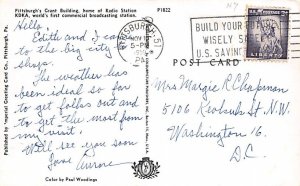 Pittsburgh's Grant Building, home of Radio Station
KDKA, world's first commercial broadcasting station.
P1822
Hello,
Edith and I came
to the big city
shops.
The weather has
been ideal so far
to get folks out and
to get the most from
my visit.
Will see you soon
Love
PITTSBURGH
NOV 13
5-PM
PA
BUILD YOUR FUTURE
WISELY
U.S. SAVINGS
LIBERTY
POST CARD
Mrs Margie R. Chapman
5106
St N.W.
Washington 16.
D.C.
Published by Special Greeting Card Co., Pittsburgh, Pa.
Color by Paul Woodings